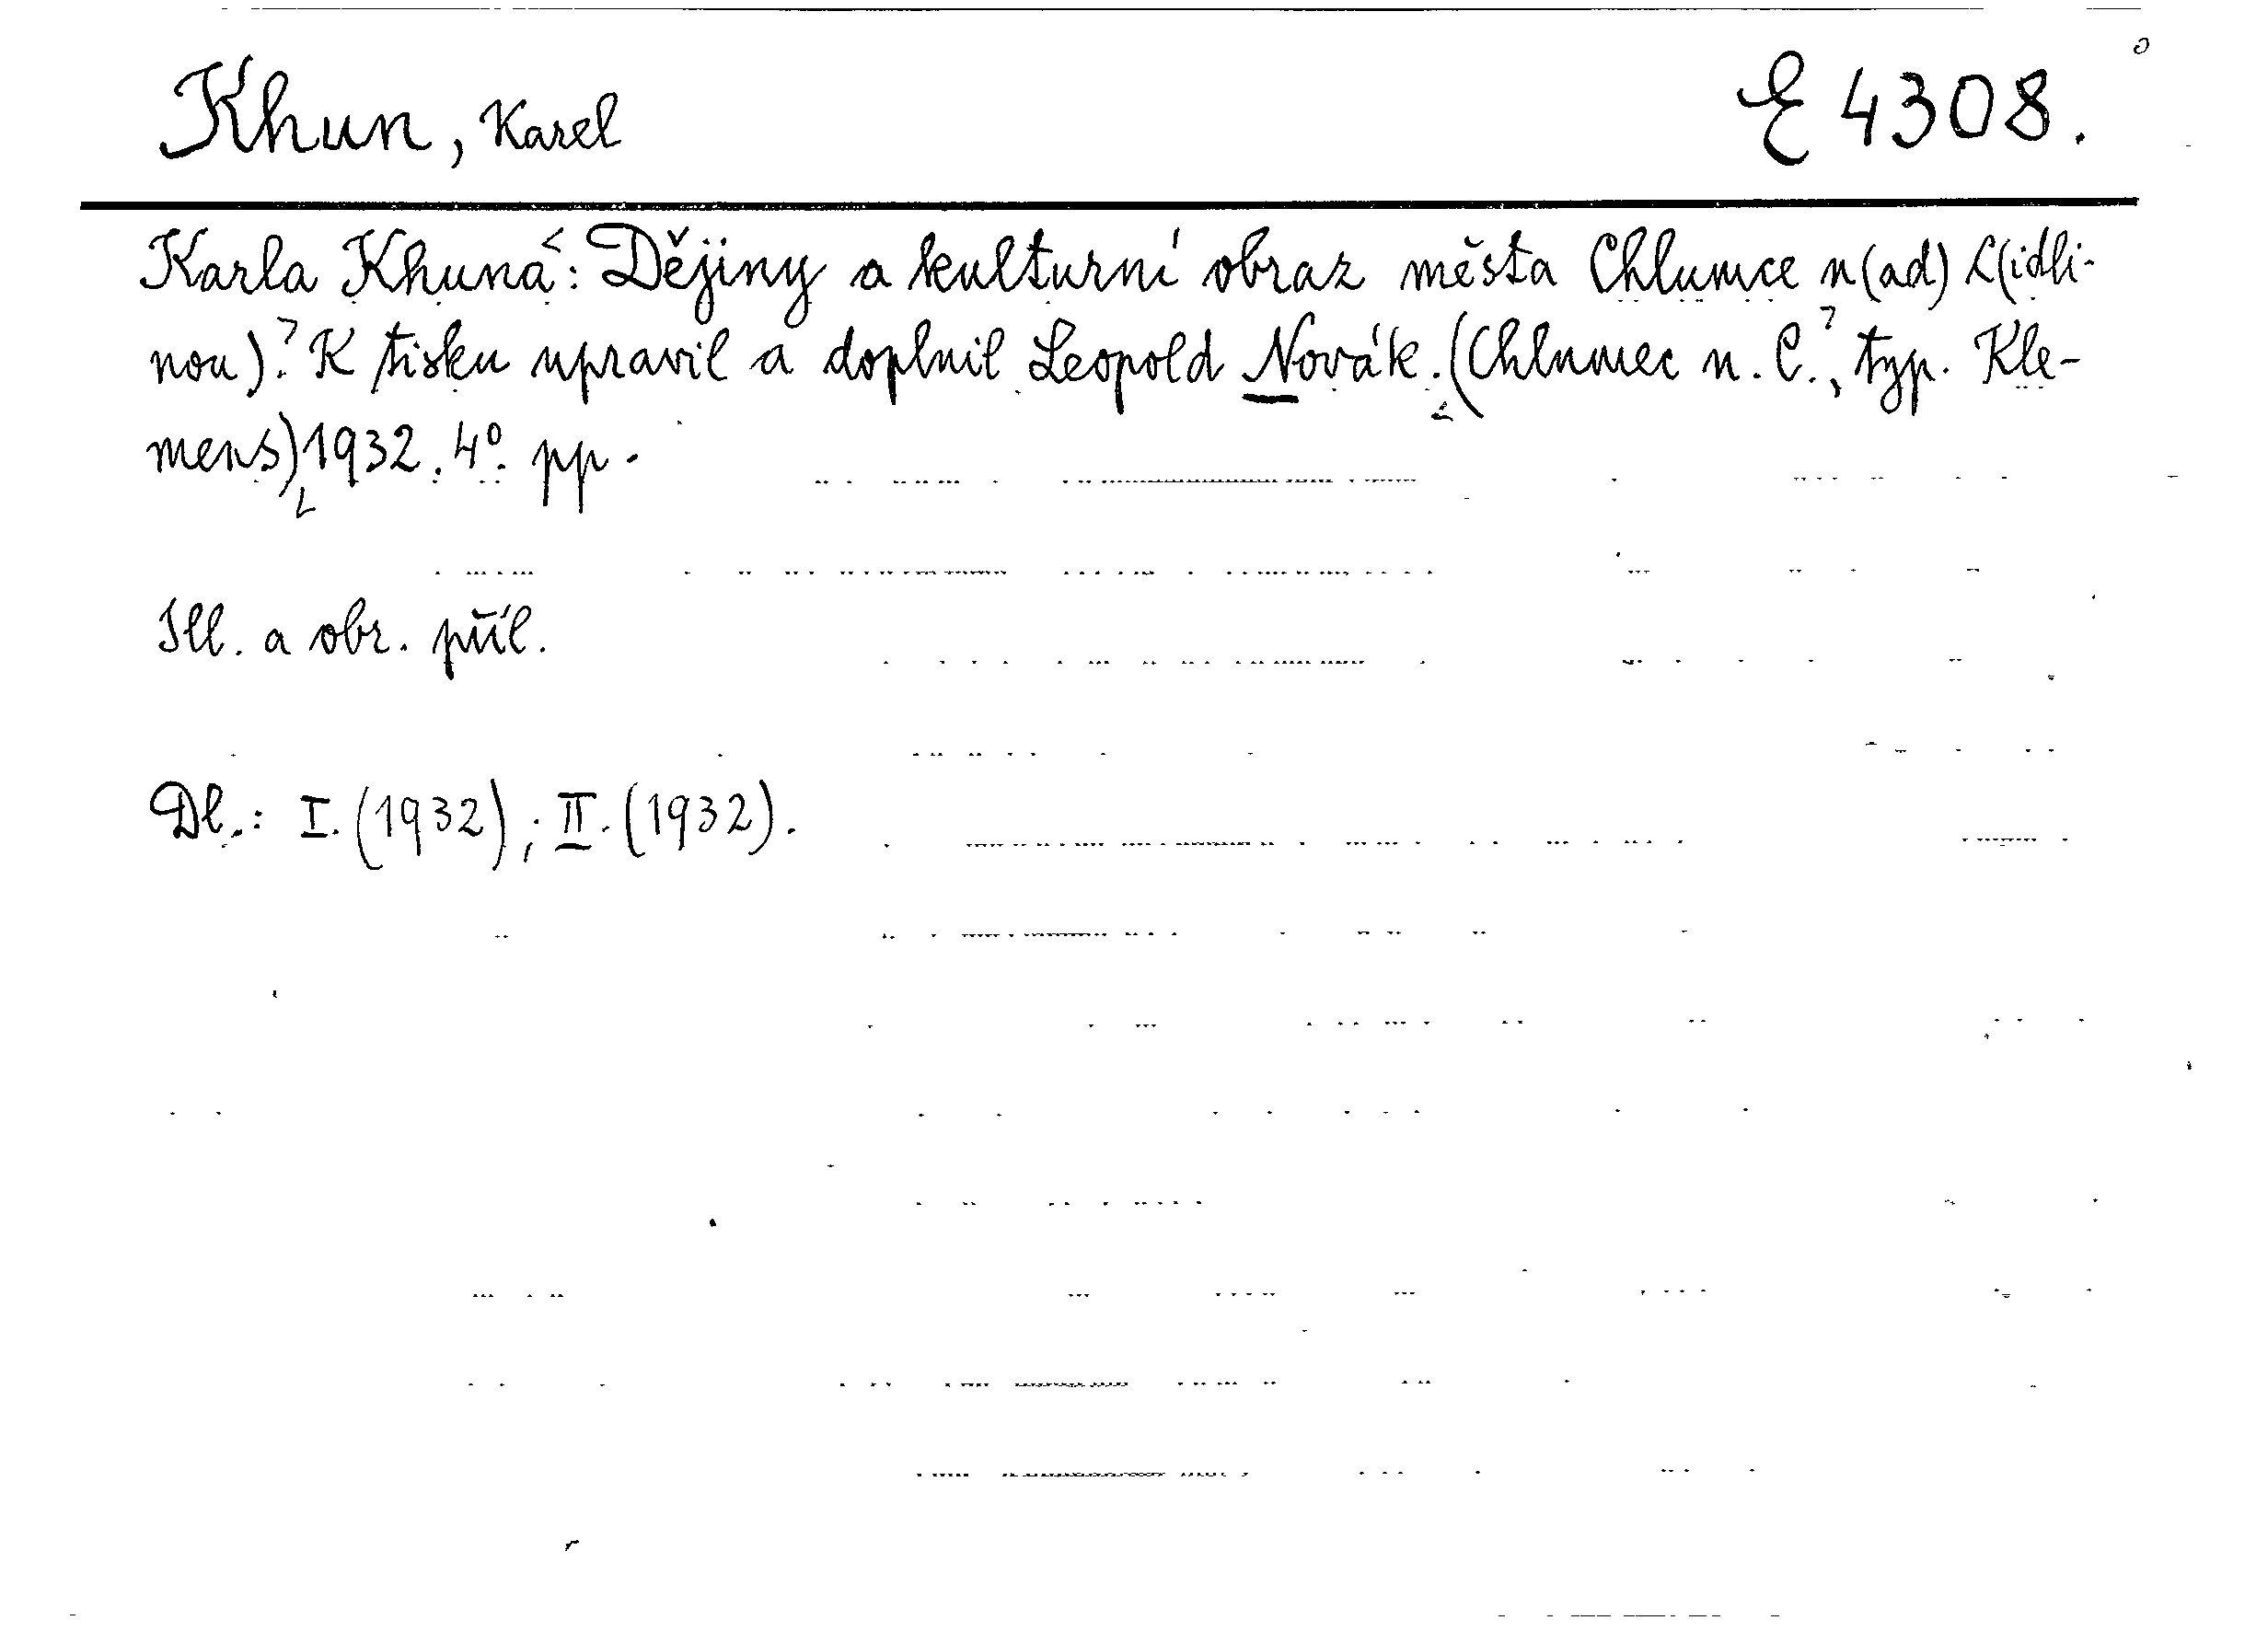 Khun, Karel E 4308.
Karla Khuna: Dějiny a kulturní obraz města Chlumce n(ad) C(idli-
nou). K tisku upravil a doplnil Leopold Novák. (Chlumec n. C., typ. Kle-
mens) 1932. 4°. pp.
Ill. a obr. příl.
Dl.: I. (1932); II. (1932).